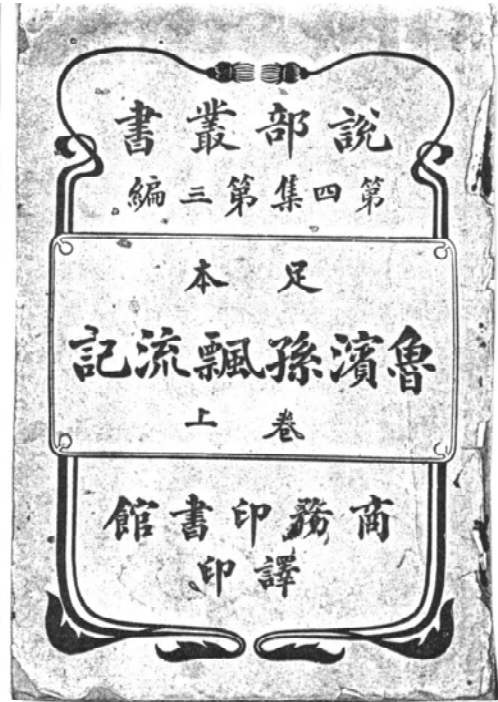 說部叢書
第四集第三編
足本
魯濱孫飄流記
卷上
商務印書館
譯印